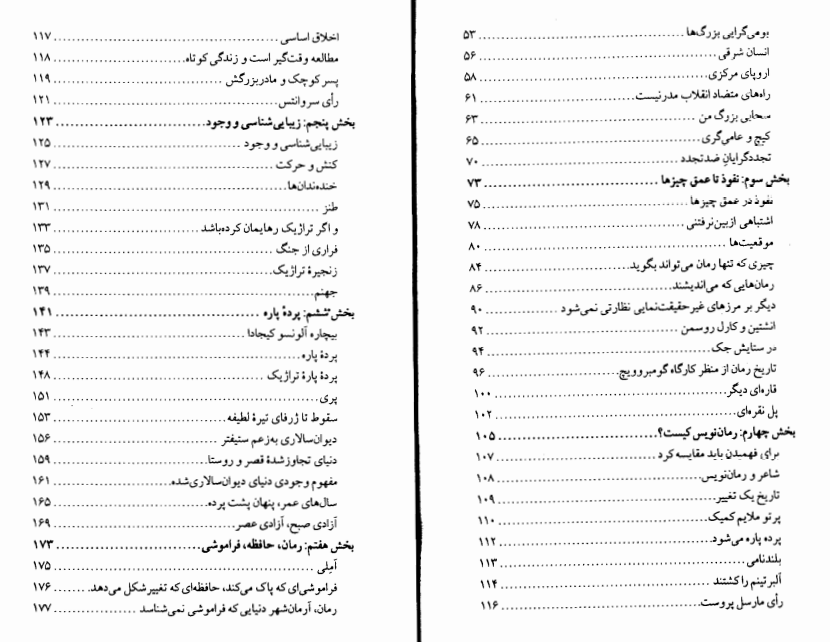 بومی‌گرایی بزرگ‌ها ........ ۵۳
انسان شرقی ........ ۵۶
اروپای مرکزی ........ ۵۸
راه‌های متضاد انقلاب مدرنیست ........ ۶۱
سحابی بزرگ من ........ ۶۳
کیچ و عامی‌گری ........ ۶۵
تجددگرایانِ ضدتجدد ........ ۷۰
بخش سوم: نفوذ تا عمق چیزها ........ ۷۳
نفوذ در عمق چیزها ........ ۷۵
اشتباهی ازبین‌نرفتنی ........ ۷۸
موقعیت‌ها ........ ۸۰
چیزی که تنها رمان می‌تواند بگوید ........ ۸۴
رمان‌هایی که می‌اندیشند ........ ۸۶
دیگر بر مرزهای غیرحقیقت‌نمایی نظارتی نمی‌شود ........ ۹۰
انشتین و کارل روسمن ........ ۹۲
در ستایش جک ........ ۹۴
تاریخ رمان از منظر کارگاه گومبروویچ ........ ۹۶
قاره‌ای دیگر ........ ۱۰۰
پل نقره‌ای ........ ۱۰۲
بخش چهارم: رمان‌نویس کیست؟ ........ ۱۰۵
برای فهمیدن باید مقایسه کرد ........ ۱۰۷
شاعر و رمان‌نویس ........ ۱۰۸
تاریخ یک تغییر ........ ۱۰۹
پرتو ملایم کمیک ........ ۱۱۰
پرده پاره می‌شود ........ ۱۱۲
بلندنامی ........ ۱۱۳
آلبرتینم را کشتند ........ ۱۱۴
رأی مارسل پروست ........ ۱۱۶
اخلاق اساسی ........ ۱۱۷
مطالعه وقت‌گیر است و زندگی کوتاه ........ ۱۱۸
پسر کوچک و مادربزرگش ........ ۱۱۹
رأی سروانتس ........ ۱۲۱
بخش پنجم: زیبایی‌شناسی و وجود ........ ۱۲۳
زیبایی‌شناسی و وجود ........ ۱۲۵
کنش و حرکت ........ ۱۲۷
خنده‌ندان‌ها ........ ۱۲۹
طنز ........ ۱۳۱
و اگر تراژیک رهایمان کرده‌باشد ........ ۱۳۳
فراری از جنگ ........ ۱۳۵
زنجیرهٔ تراژیک ........ ۱۳۷
جهنم ........ ۱۳۹
بخش ششم: پردهٔ پاره ........ ۱۴۱
بیچاره آلونسو کیجادا ........ ۱۴۳
پردهٔ پاره ........ ۱۴۴
پردهٔ پارهٔ تراژیک ........ ۱۴۸
پری ........ ۱۵۱
سقوط تا ژرفای تیرهٔ لطیفه ........ ۱۵۳
دیوان‌سالاری به‌زعم ستیفتر ........ ۱۵۶
دنیای تجاوزشدهٔ قصر و روستا ........ ۱۵۹
مفهوم وجودی دنیای دیوان‌سالاری‌شده ........ ۱۶۱
سال‌های عمر، پنهان پشت پرده ........ ۱۶۵
آزادی صبح، آزادی عصر ........ ۱۶۹
بخش هفتم: رمان، حافظه، فراموشی ........ ۱۷۳
اَمِلی ........ ۱۷۵
فراموشی‌ای که پاک می‌کند، حافظه‌ای که تغییر شکل می‌دهد ........ ۱۷۶
رمان، آرمان‌شهر دنیایی که فراموشی نمی‌شناسد ........ ۱۷۷